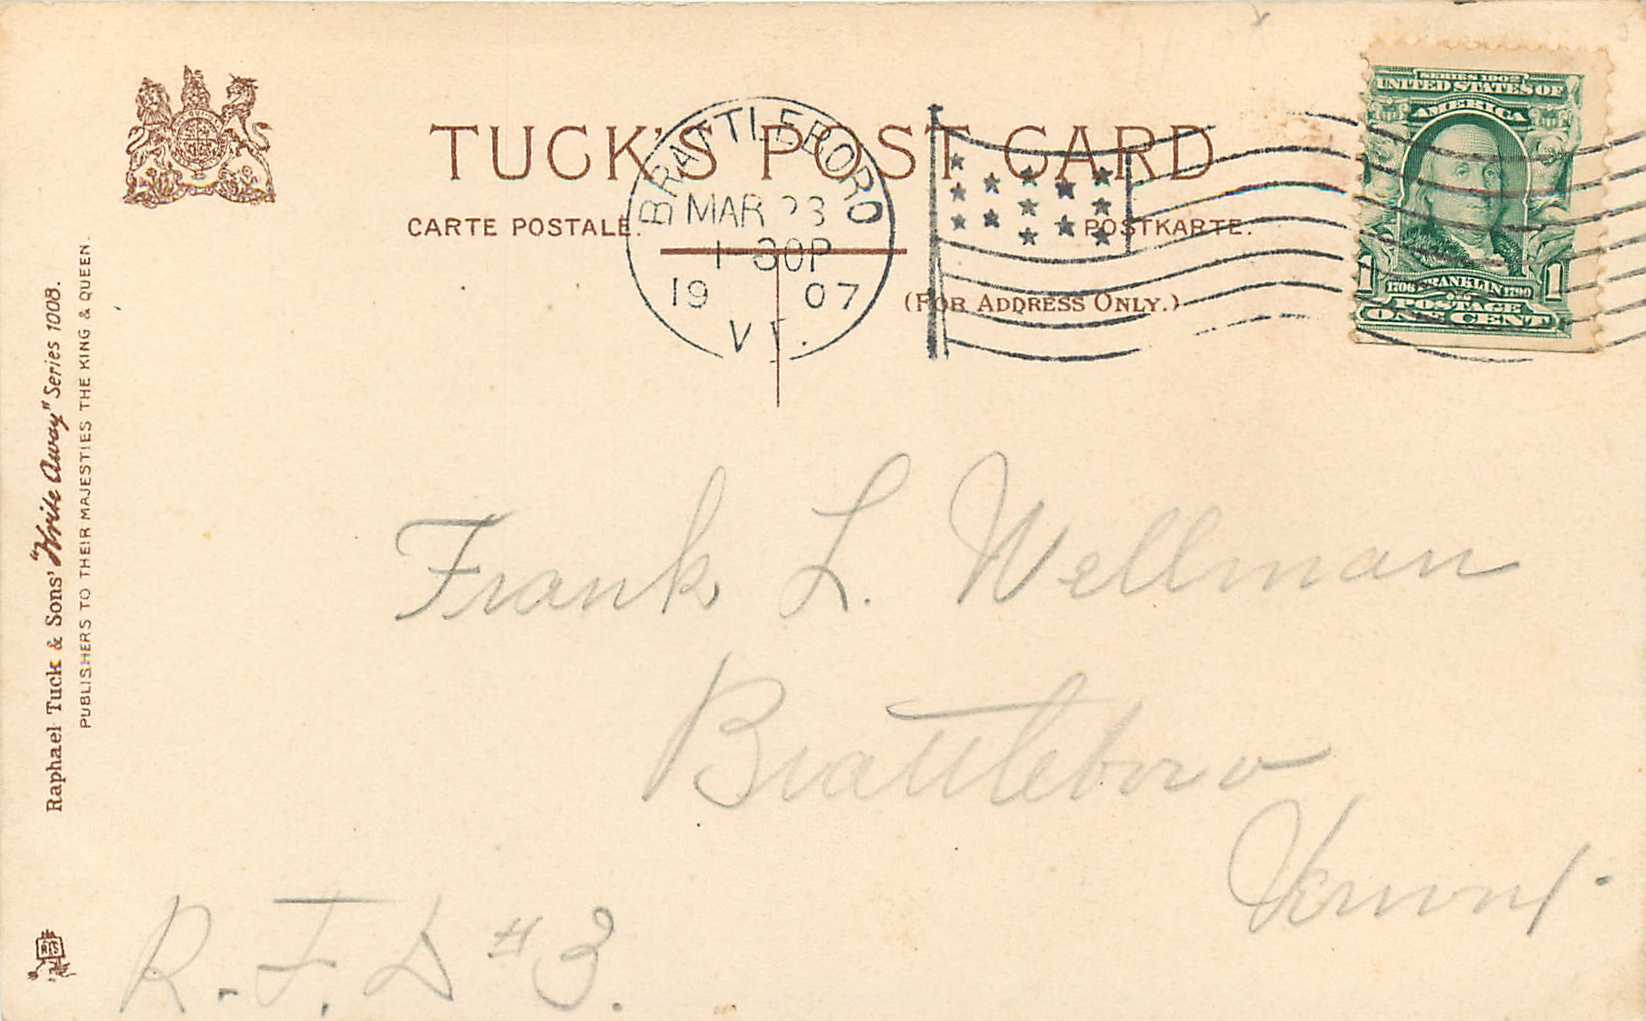 TUCK'S POST CARD
CARTE POSTALE.
POSTKARTE.
(FOR ADDRESS ONLY.)
BRATTLEBORO
MAR 23
1 30P
19 07
VT.
SERIES 1902
UNITED STATES OF
AMERICA
1706 FRANKLIN 1790
1 1
POSTAGE
ONE CENT
Raphael Tuck & Sons' "Write Away" Series 1008.
PUBLISHERS TO THEIR MAJESTIES THE KING & QUEEN.
Frank L. Wellman
Brattleboro
Vermont.
R. F. D #3.